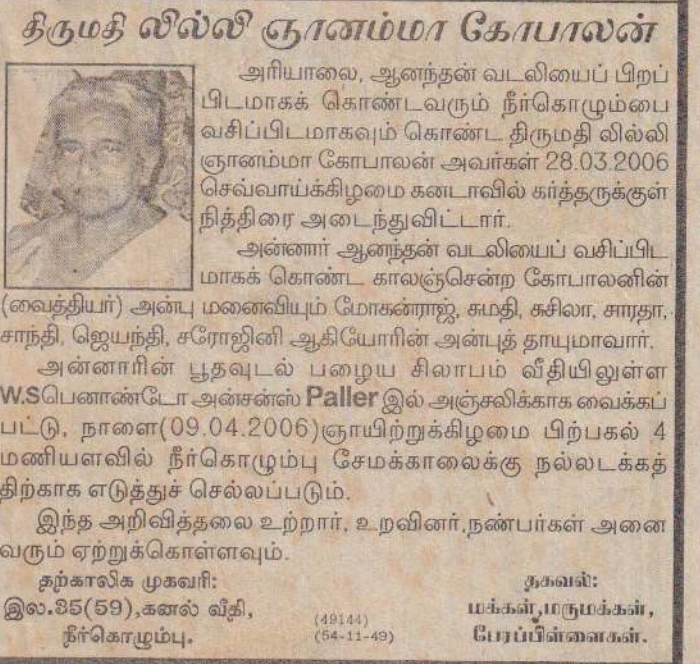 திருமதி லில்லி ஞானம்மா கோபாலன்
அரியாலை, ஆனந்தன் வடலியைப் பிறப்
பிடமாகக் கொண்டவரும் நீர்கொழும்பை
வசிப்பிடமாகவும் கொண்ட திருமதி லில்லி
ஞானம்மா கோபாலன் அவர்கள் 28.03.2006
செவ்வாய்க்கிழமை கனடாவில் கர்த்தருக்குள்
நித்திரை அடைந்துவிட்டார்.
அன்னார் ஆனந்தன் வடலியைப் வசிப்பிட
மாகக் கொண்ட காலஞ்சென்ற கோபாலனின்
(வைத்தியர்) அன்பு மனைவியும் மோகன்ராஜ், சுமதி, சுசிலா, சாரதா,
சாந்தி, ஜெயந்தி, சரோஜினி ஆகியோரின் அன்புத் தாயுமாவார்.
அன்னாரின் பூதவுடல் பழைய சிலாபம் வீதியிலுள்ள
W.Sபெனாண்டோ அன்சன்ஸ் Paller இல் அஞ்சலிக்காக வைக்கப்
பட்டு, நாளை(09.04.2006)ஞாயிற்றுக்கிழமை பிற்பகல் 4
மணியளவில் நீர்கொழும்பு சேமக்காலைக்கு நல்லடக்கத்
திற்காக எடுத்துச் செல்லப்படும்.
இந்த அறிவித்தலை உற்றார், உறவினர்,நண்பர்கள் அனை
வரும் ஏற்றுக்கொள்ளவும்.
தற்காலிக முகவரி:
இல.35(59),கனல் வீதி,
நீர்கொழும்பு.
(49144)
(54-11-49)
தகவல்:
மக்கள்,மருமக்கள்,
பேரப்பிள்ளைகள்.